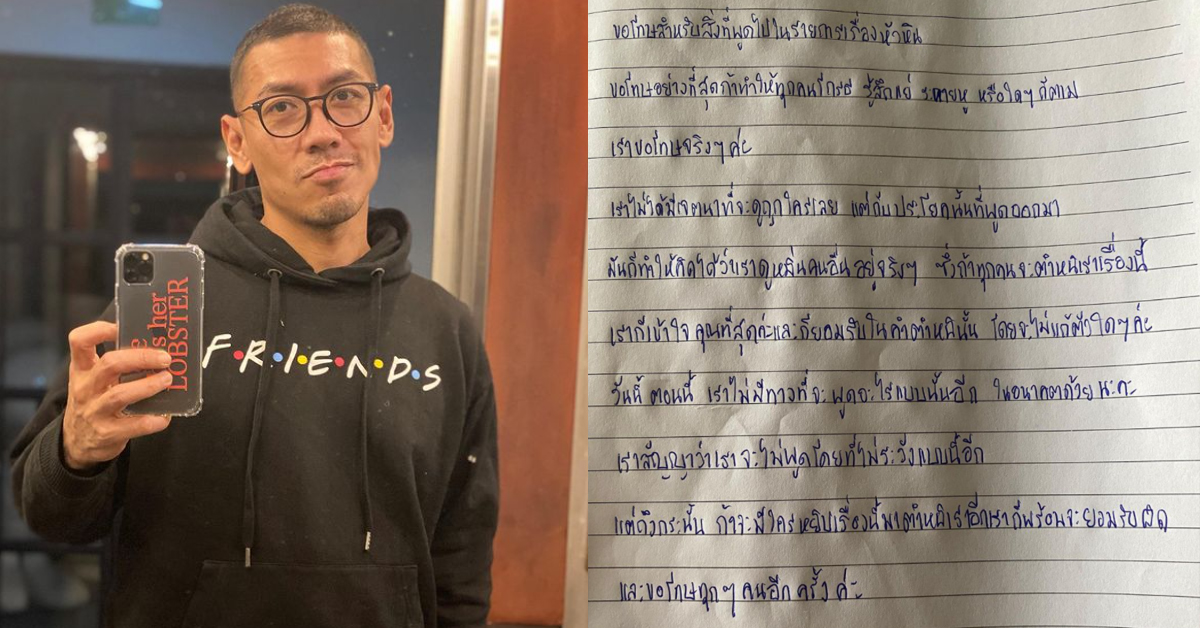 F·R·I·E·N·D·S
e
s her
LOBSTER
ขอโทษสำหรับสิ่งที่พูดไปในรายการเรื่องหัวหิน
ขอโทษอย่างที่สุดถ้าทำให้ทุกคนโกรธ รู้สึกแย่ ระคายหู หรือใดๆ ก็ตาม
เราขอโทษจริงๆ ค่ะ
เราไม่ได้มีเจตนาที่จะดูถูกใครเลย แต่กับประโยคนั้นที่พูดออกมา
มันก็ทำให้คิดได้ว่าเราดูหมิ่นคนอื่นอยู่จริงๆ ซึ่งถ้าทุกคนจะตำหนิเราเรื่องนี้
เราก็เข้าใจคุณที่สุดค่ะและก็ยอมรับในคำตำหนินั้น โดยจะไม่แก้ตัวใดๆ ค่ะ
วันนี้ ตอนนี้ เราไม่มีทางที่จะพูดอะไรแบบนั้นอีก ในอนาคตด้วยนะคะ
เราสัญญาว่าเราจะไม่พูดโดยที่ไม่ระวังแบบนี้อีก
แต่ถึงกระนั้น ถ้าจะมีใครหยิบเรื่องนี้มาตำหนิเราอีกเราก็พร้อมจะยอมรับผิด
และขอโทษทุกๆ คนอีกครั้งค่ะ